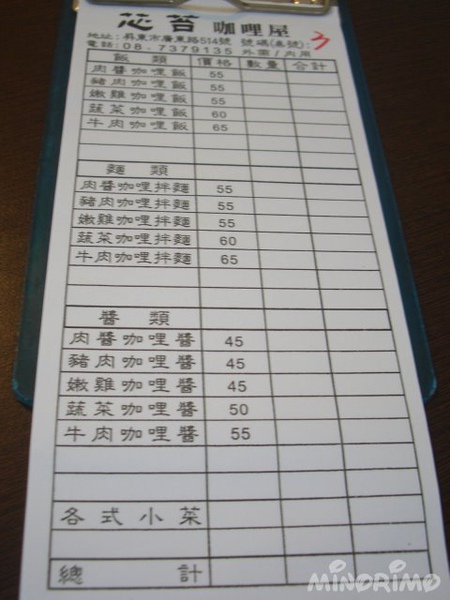 芯苔 咖哩屋
地址:屏東市廣東路514號 號碼(桌號): 3
電話:08-7379135 外圍/內用
飯類 價格 數量 合計
肉醬咖哩飯 55
豬肉咖哩飯 55
嫩雞咖哩飯 55
蔬菜咖哩飯 60
牛肉咖哩飯 65
麵類
肉醬咖哩拌麵 55
豬肉咖哩拌麵 55
嫩雞咖哩拌麵 55
蔬菜咖哩拌麵 60
牛肉咖哩拌麵 65
醬類
肉醬咖哩醬 45
豬肉咖哩醬 45
嫩雞咖哩醬 45
蔬菜咖哩醬 50
牛肉咖哩醬 55
各式小菜
總計
MINORIMO